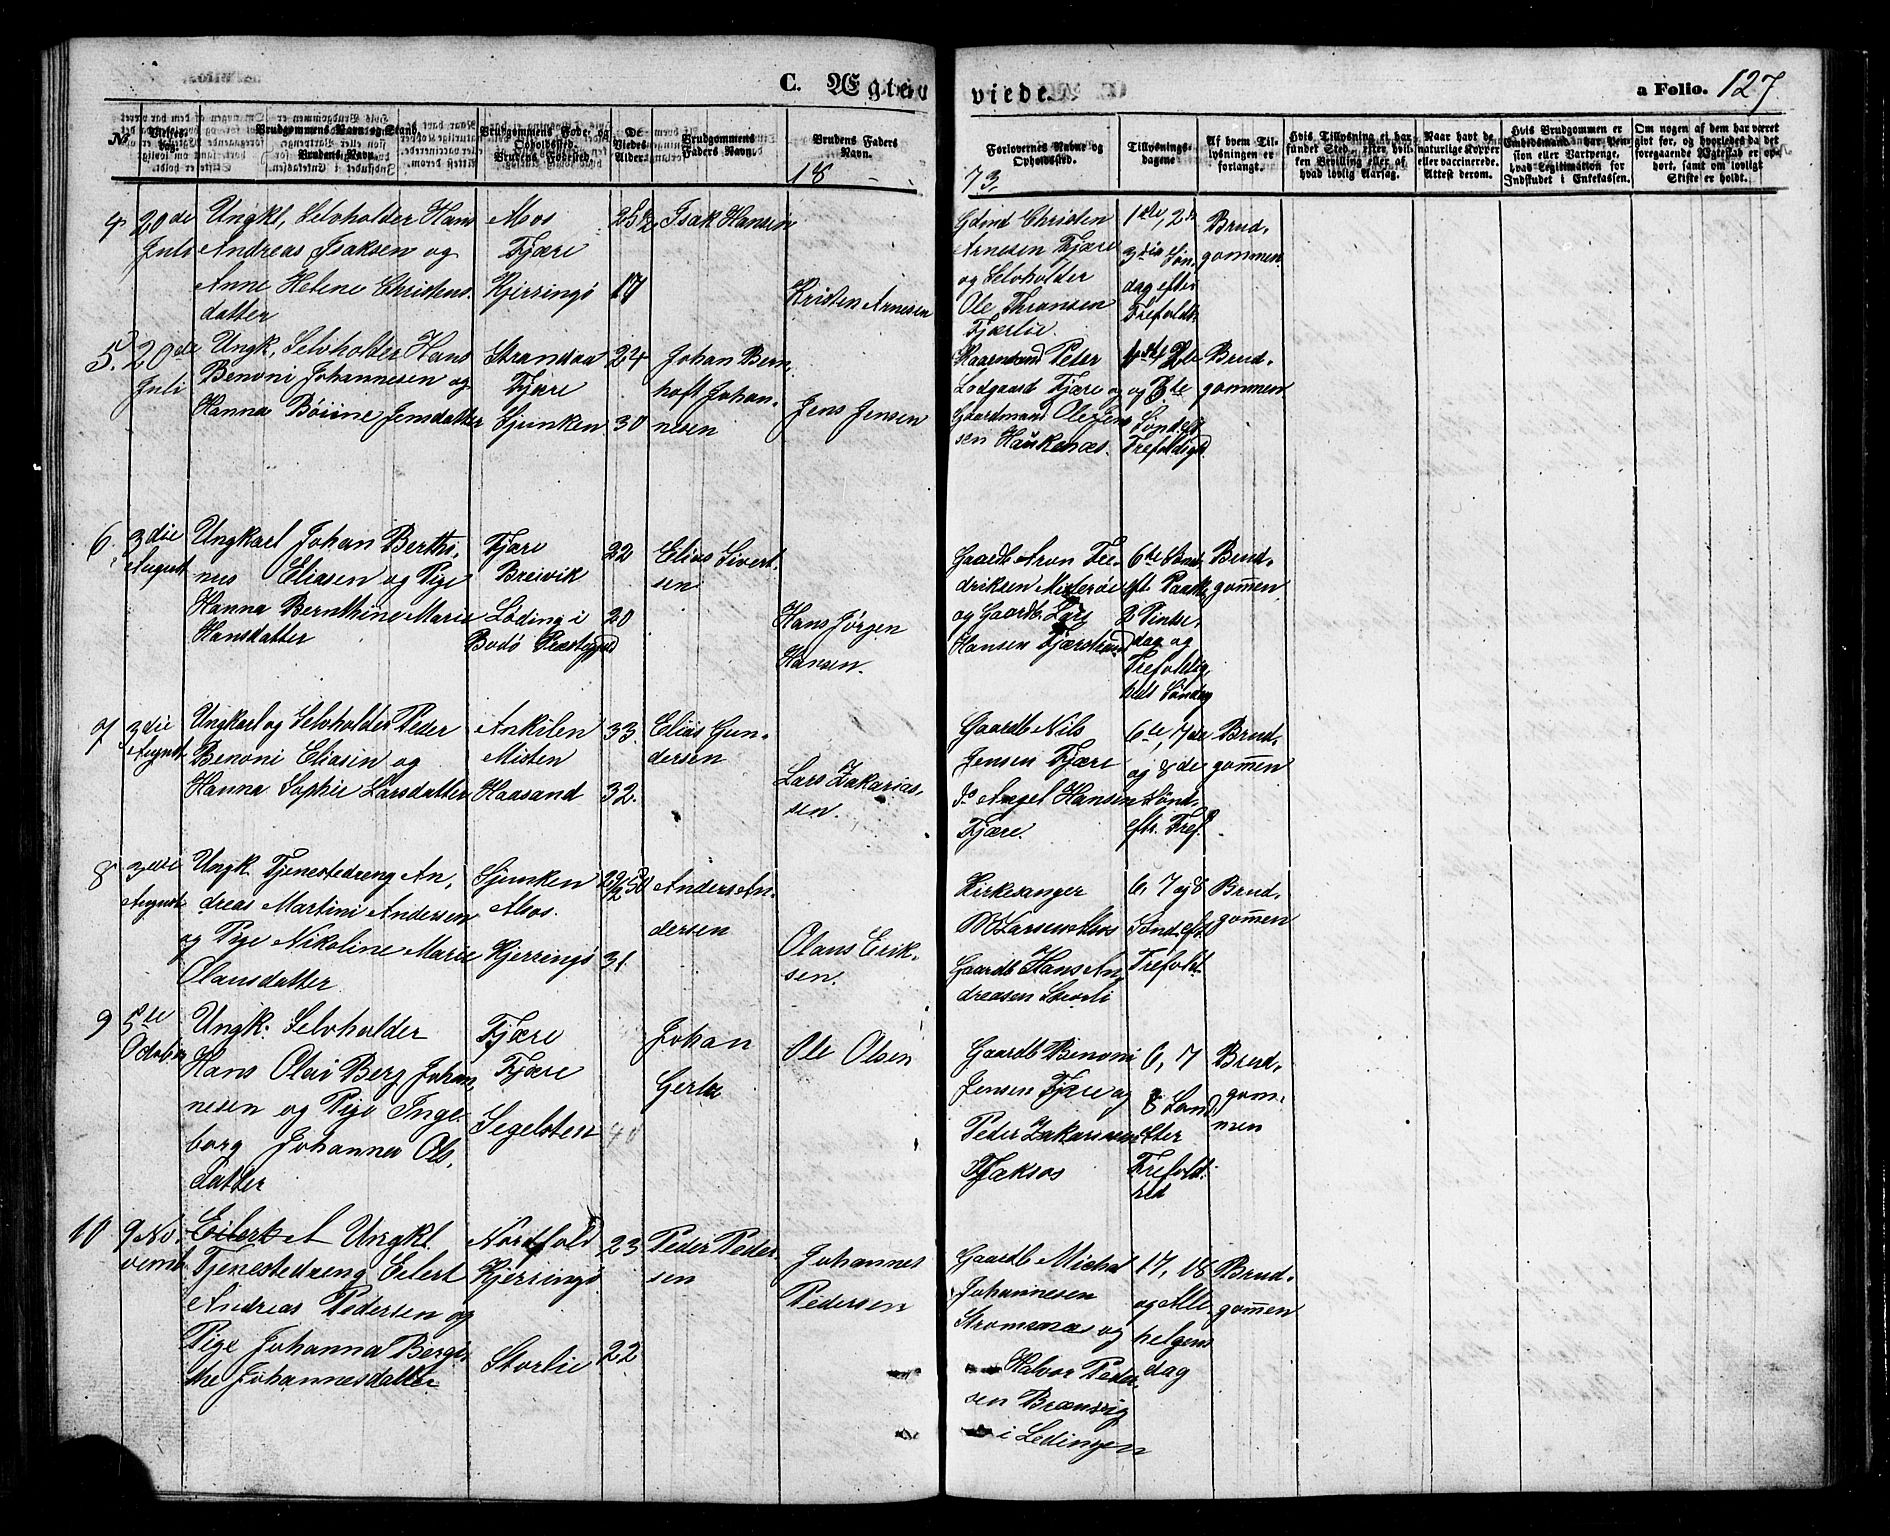 C. Ægteviede.
a Folio. 127
No.
Vielses-dag.
Brudgommens Navn og Stand.
Brudens Navn.
Brudgommens Føde- og Opholdssted.
Brudens Fødested.
De Viedes Alder.
Brudgommens Faders Navn.
Brudens Faders Navn.
Forlovernes Navne og Opholdssted.
Tillysnings-dagene
Af hvem Tillysningen er forlangt.
Hvis Tillysning ei har fundet Sted, efter hvilken Bevilling eller af hvad lovlig Aarsag.
Naar havt de naturlige Kopper eller vaccinerede. Attest derom.
Hvis Brudgommen er Embedsmand, har Pension eller Vartpenge, hvad Legitimation for Indskudet i Enkekassen.
Om nogen af dem har været givt før, og hvorledes da det foregaaende Ægteskab er ophørt, samt om lovligt Skifte er holdt.
18 73.
4 20de Juli
Ungkl, Selvholder Hans
Andreas Isaksen og
Anne Helene Christens,
datter
Mos
Fjære
Kjerringö
25½
17
Isak Hansen
Kristen Arnesen
Christen
Arnesen Fjære
og Selvholder
Ole Thransen
Fjærlie.
1ste, 2de
3die Søn,
dag efter
Trefoldt.
Brud,
gommen
5. 20de Juli
Ungk, Selvholder Hans
Benoni Johannesen og
Hanna Böiine Jensdatter
Strandaa
Fjære
Sjunken
24
30
Johan Bern,
hoft Johan,
nesen
Jens Jensen
Peter
Lodgaard Fjære og
Gaardmand Ole Jens
sen Haukenæs.
1ste 2de
og 3te
Sönd eft
Trefoldigd
Brud,
gommen
6. 3die August
Ungkarl Johan Berthi,
nus Eliasen og Pige
Hanna Bernthine Marie
Hansdatter
Fjære
Breivik
Löding i
Bodö Præstegjeld
22
20
Elias Sivert,
sen
Hans Jörgen
Hansen.
Gaardb Aron Fre,
driksen Misteröe
og Gaardb. Lars
Hansen Fjærstrand
6te Sönd
eft Paaske
2 Pintse,
dag og
Trefoldig
heds Söndag
Brud,
gommen
7 3die August
Ungkarl og Selvholder Peder
Benoni Eliasen og
Hanna Sophie Larsdatter
Ankilen
Misten
Haasand
33.
32.
Elias Gun,
dersen
Lars Zakarias,
sen.
Gaardb Nils
Jensen Fjære
Angel Hansen
Fjære.
6te, 7de
og 8de
Sönd,
eftr. Tref.
Brud,
gommen
8 3die August
Ungk Tjenestedreng An,
dreas Martini Andersen
og Pige Nikoline Marie
Olausdatter
Sjunken
Mos.
Kjerringö
31
Anders An,
dersen
Olaus Erik,
sen.
Kirkesanger
Gaardb Hans An,
dreasen Storli
6, 7 og 8
Sönd. eft
Trefold.
Brud,
gommen
9 5te October
Ungk. Selvholder
Hans Olai Berg Johan,
nesen og Pige Inge,
borg Johanna Ols,
datter
Fjære
Fjære
Segelsten
40
Johan
Ole Olsen
Gaardb Benoni
Jensen Fjære og
Peder Zakariasen
6, 7
8 Sönd,
efter
Trefold,
hed
Brud,
gom,
men
10 9 No,
vemb
Ungkl.
Tjenestedreng Eilert
Andreas Pedersen og
Pige Johanna Bergi,
the Johannesdatter
Nordfold
Kjerringö
Storlie
23
22
Peder Peder
sen
Johannes
Pedersen
Gaardb Michal
Johannesen
Strömsnæs og
Halvor Peder,
sen Brænsvig
i Lödingen
17, 18
og Alle,
helgens
dag
Brud,
gommen